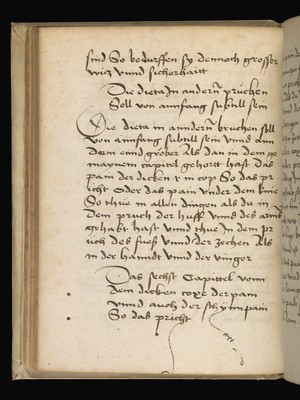 sind So bedurffen sy dennoch grosser
witz vnnd sicherhaitt
Die dieta in andern pruchen
Soll von annfang subtill sein
Die dieta in anndern bruchen soll
von annfang subtill sein vnnd am
Dem ennd grober Als dan in dem ge
maynem capitel gehortt hast das
pain der dicken in cop So das pr
icht Oder das pain vnder dem knie
So thue in allen dingen als du in
Dem pruch der huff vnnd des arms
gehabt hast vnnd thue In dem pr
uch des fuess vnnd der zechen Als
in der hanndt vnnd der vinger
Das sechst Capittel vonn
dem dicken coxe der pain
vnnd auch der schynnpain
So das pricht